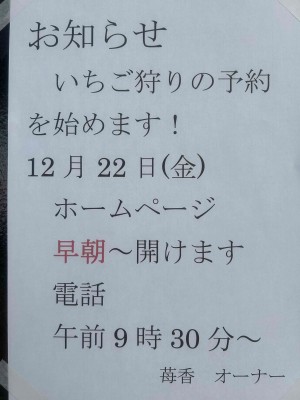 お知らせ
いちご狩りの予約
を始めます！
12月22日(金)
ホームページ
早朝～開けます
電話
午前9時30分～
苺香　オーナー